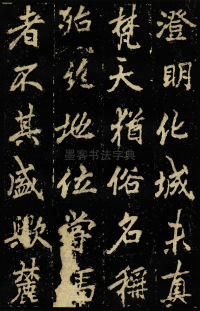 澄明化城未真
梵天猶俗名稱
殆絕地位嘗
者不其盛歟麓
墨客书法字典